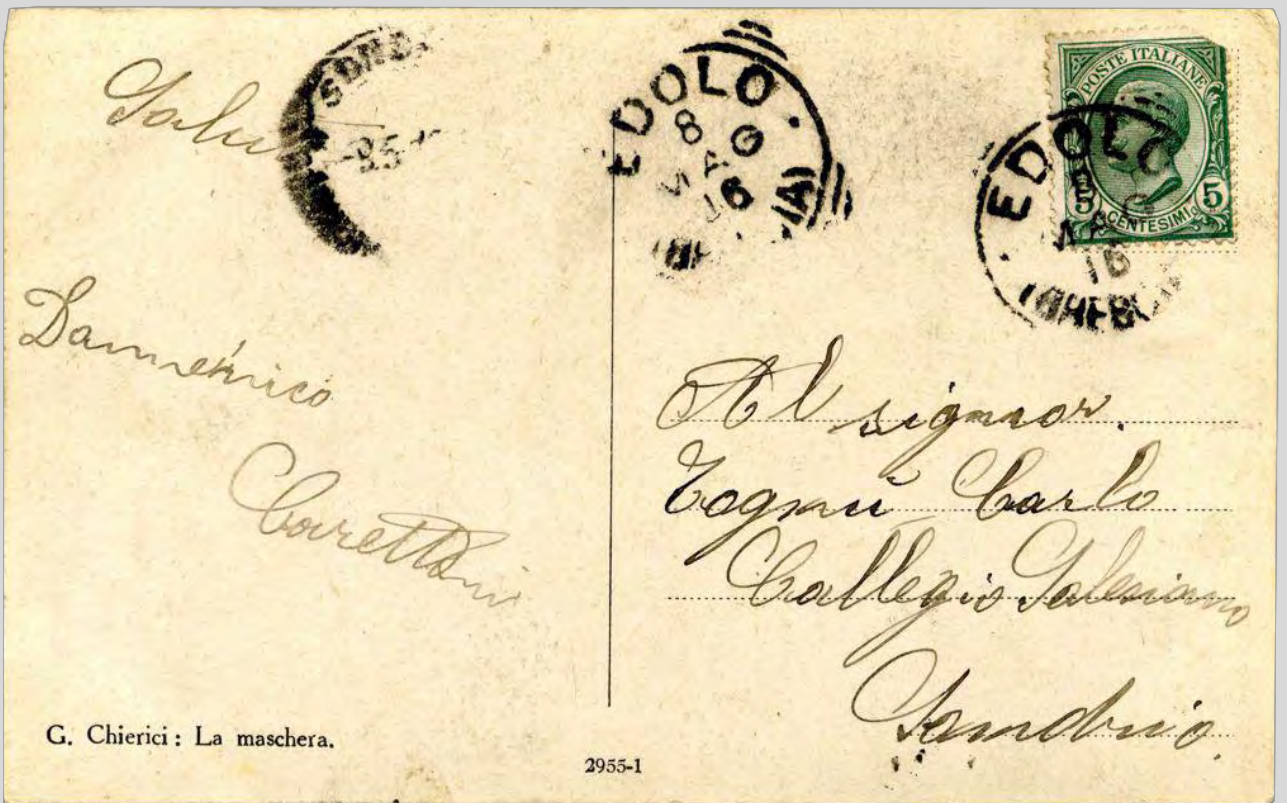 Salu
SOND
EDOLO
8
MAG
16
POSTE ITALIANE
5 CENTESIMI 5
EDOLO
8
MAG
16
(BRESCIA)
Carettoni
Al signor
Togni Carlo
Collegio Salesiano
Sondrio
G. Chierici: La maschera.
2955-1